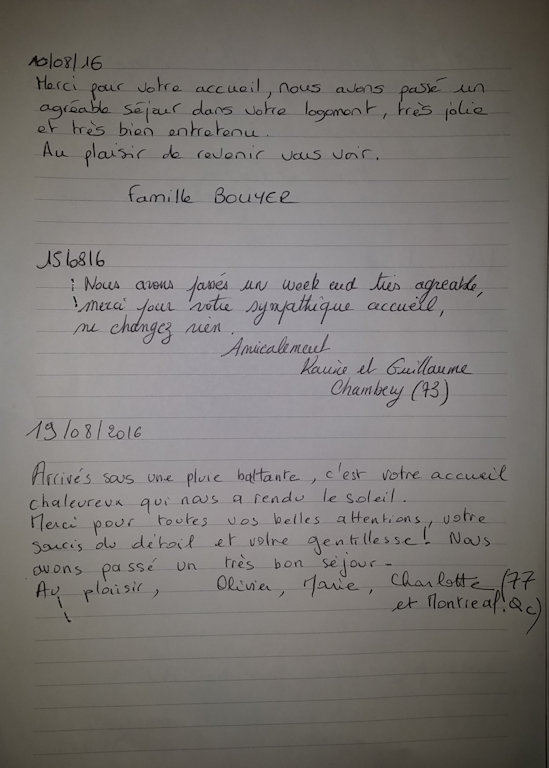 10/08/16
Merci pour votre accueil, nous avons passé un
agréable séjour dans votre logement, très jolie
et très bien entretenu.
Au plaisir de revenir vous voir.
Famille BOUYER
15/08/6
Nous avons passés un week end très agreable,
merci pour votre sympathique accueil,
ne changez rien.
Amicalement
Karine et Guillaume
Chambery (73)
19/08/2016
Arrivés sous une pluie battante, c'est votre accueil
chaleureux qui nous a rendu le soleil.
Merci pour toutes vos belles attentions, votre
soucis du détail et votre gentillesse! Nous
avons passé un très bon séjour.
Au plaisir, Olivier, Marie, Charlotte (77
et Montreal. Qc)